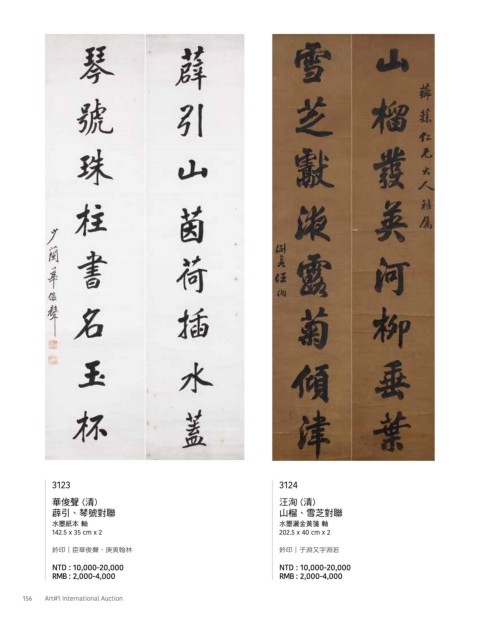 薜引山茵荷插水蓋
琴號珠柱書名玉杯
少蘭華俊聲
山榴發英河柳垂葉
雪芝獻液露菊傾津
仁兄大人雅屬
汪洵
3123
華俊聲 (清)
薜引、琴號對聯
水墨紙本 軸
142.5 x 35 cm x 2
鈐印｜臣華俊聲、庚寅翰林
NTD : 10,000-20,000
RMB : 2,000-4,000
3124
汪洵 (清)
山榴、雪芝對聯
水墨灑金黃箋 軸
202.5 x 40 cm x 2
鈐印｜子淵又字淵若
NTD : 10,000-20,000
RMB : 2,000-4,000
156 Art#1 International Auction